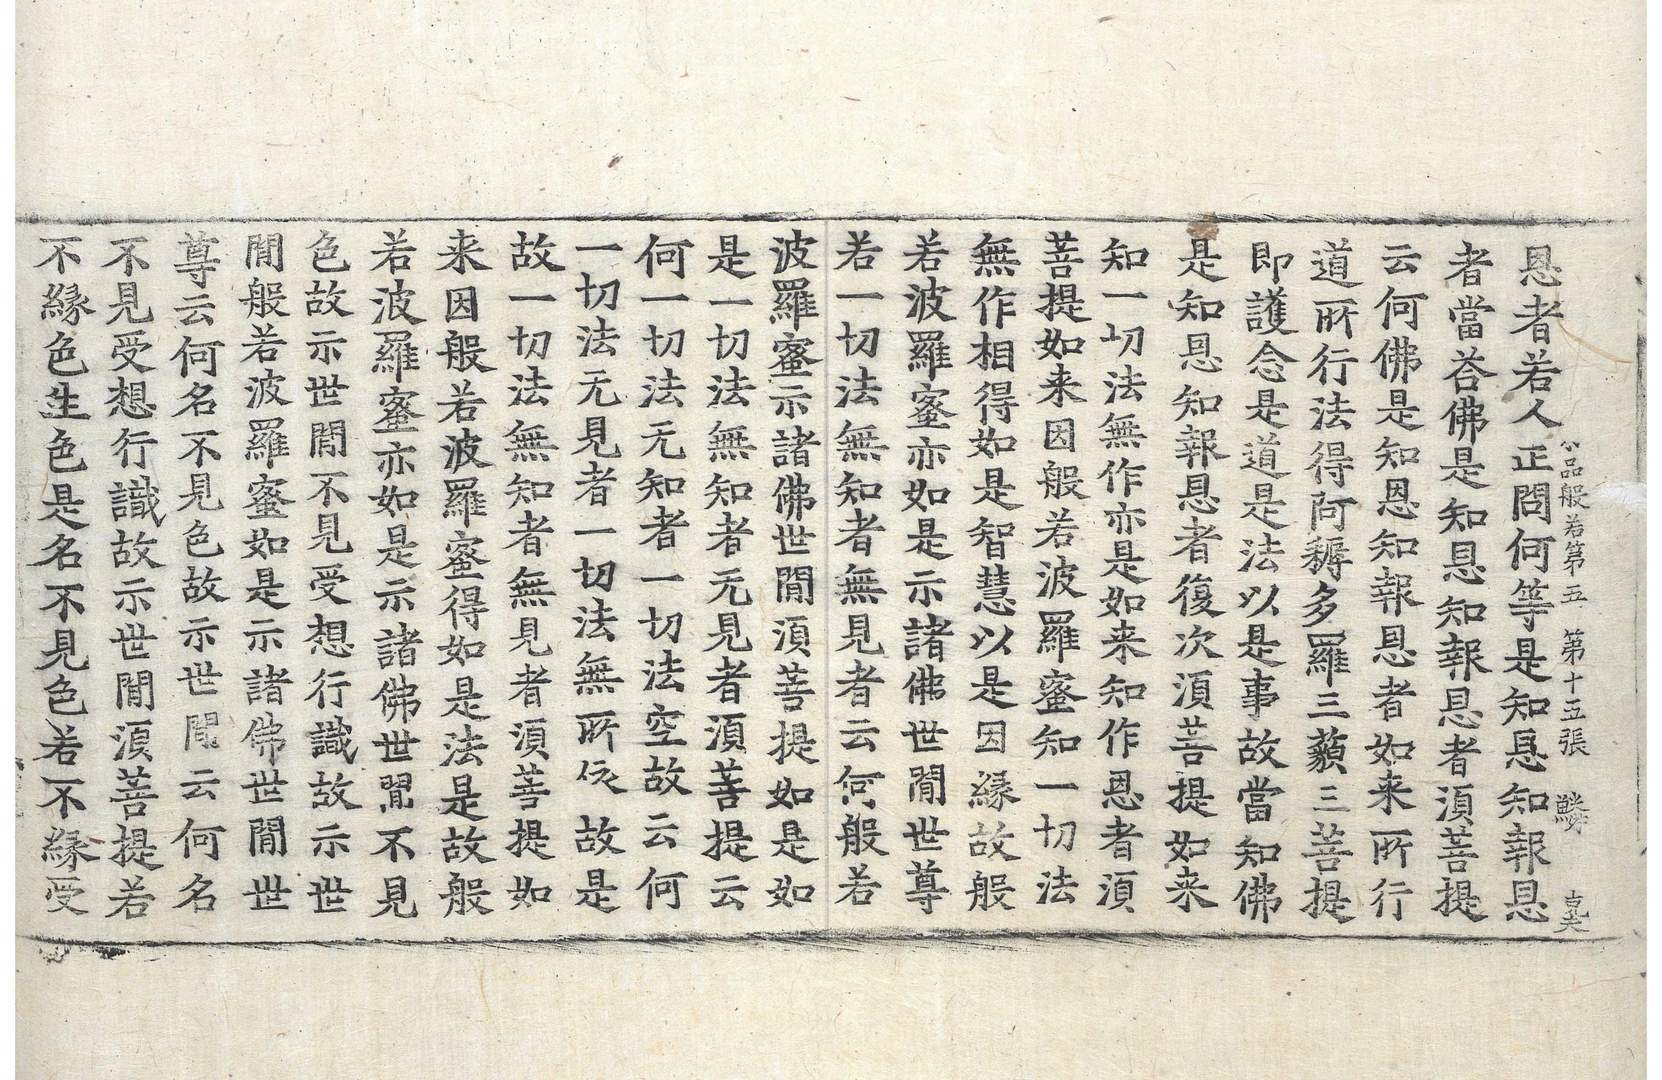 小品般若第五 第十五張 鱗
恩者若人正問何等是知恩知報恩
者當荅佛是知恩知報恩者湏菩提
云何佛是知恩知報恩者如来所行
道所行法得阿耨多羅三藐三菩提
即護念是道是法以是事故當知佛
是知恩知報恩者復次湏菩提如来
知一切法無作亦是如来知作恩者湏
菩提如来因般若波羅蜜知一切法
無作相得如是智慧以是因縁故般
若波羅蜜亦如是示諸佛世閒世尊
若一切法無知者無見者云何般若
波羅蜜示諸佛世閒湏菩提如是如
是一切法無知者无見者湏菩提云
何一切法无知者一切法空故云何
一切法无見者一切法無所依故是
故一切法無知者無見者湏菩提如
来因般若波羅蜜得如是法是故般
若波羅蜜亦如是示諸佛世閒不見
色故示世閒不見受想行識故示世
閒般若波羅蜜如是示諸佛世閒世
尊云何名不見色故示世閒云何名
不見受想行識故示世閒湏菩提若
不縁色生色是名不見色若不縁受